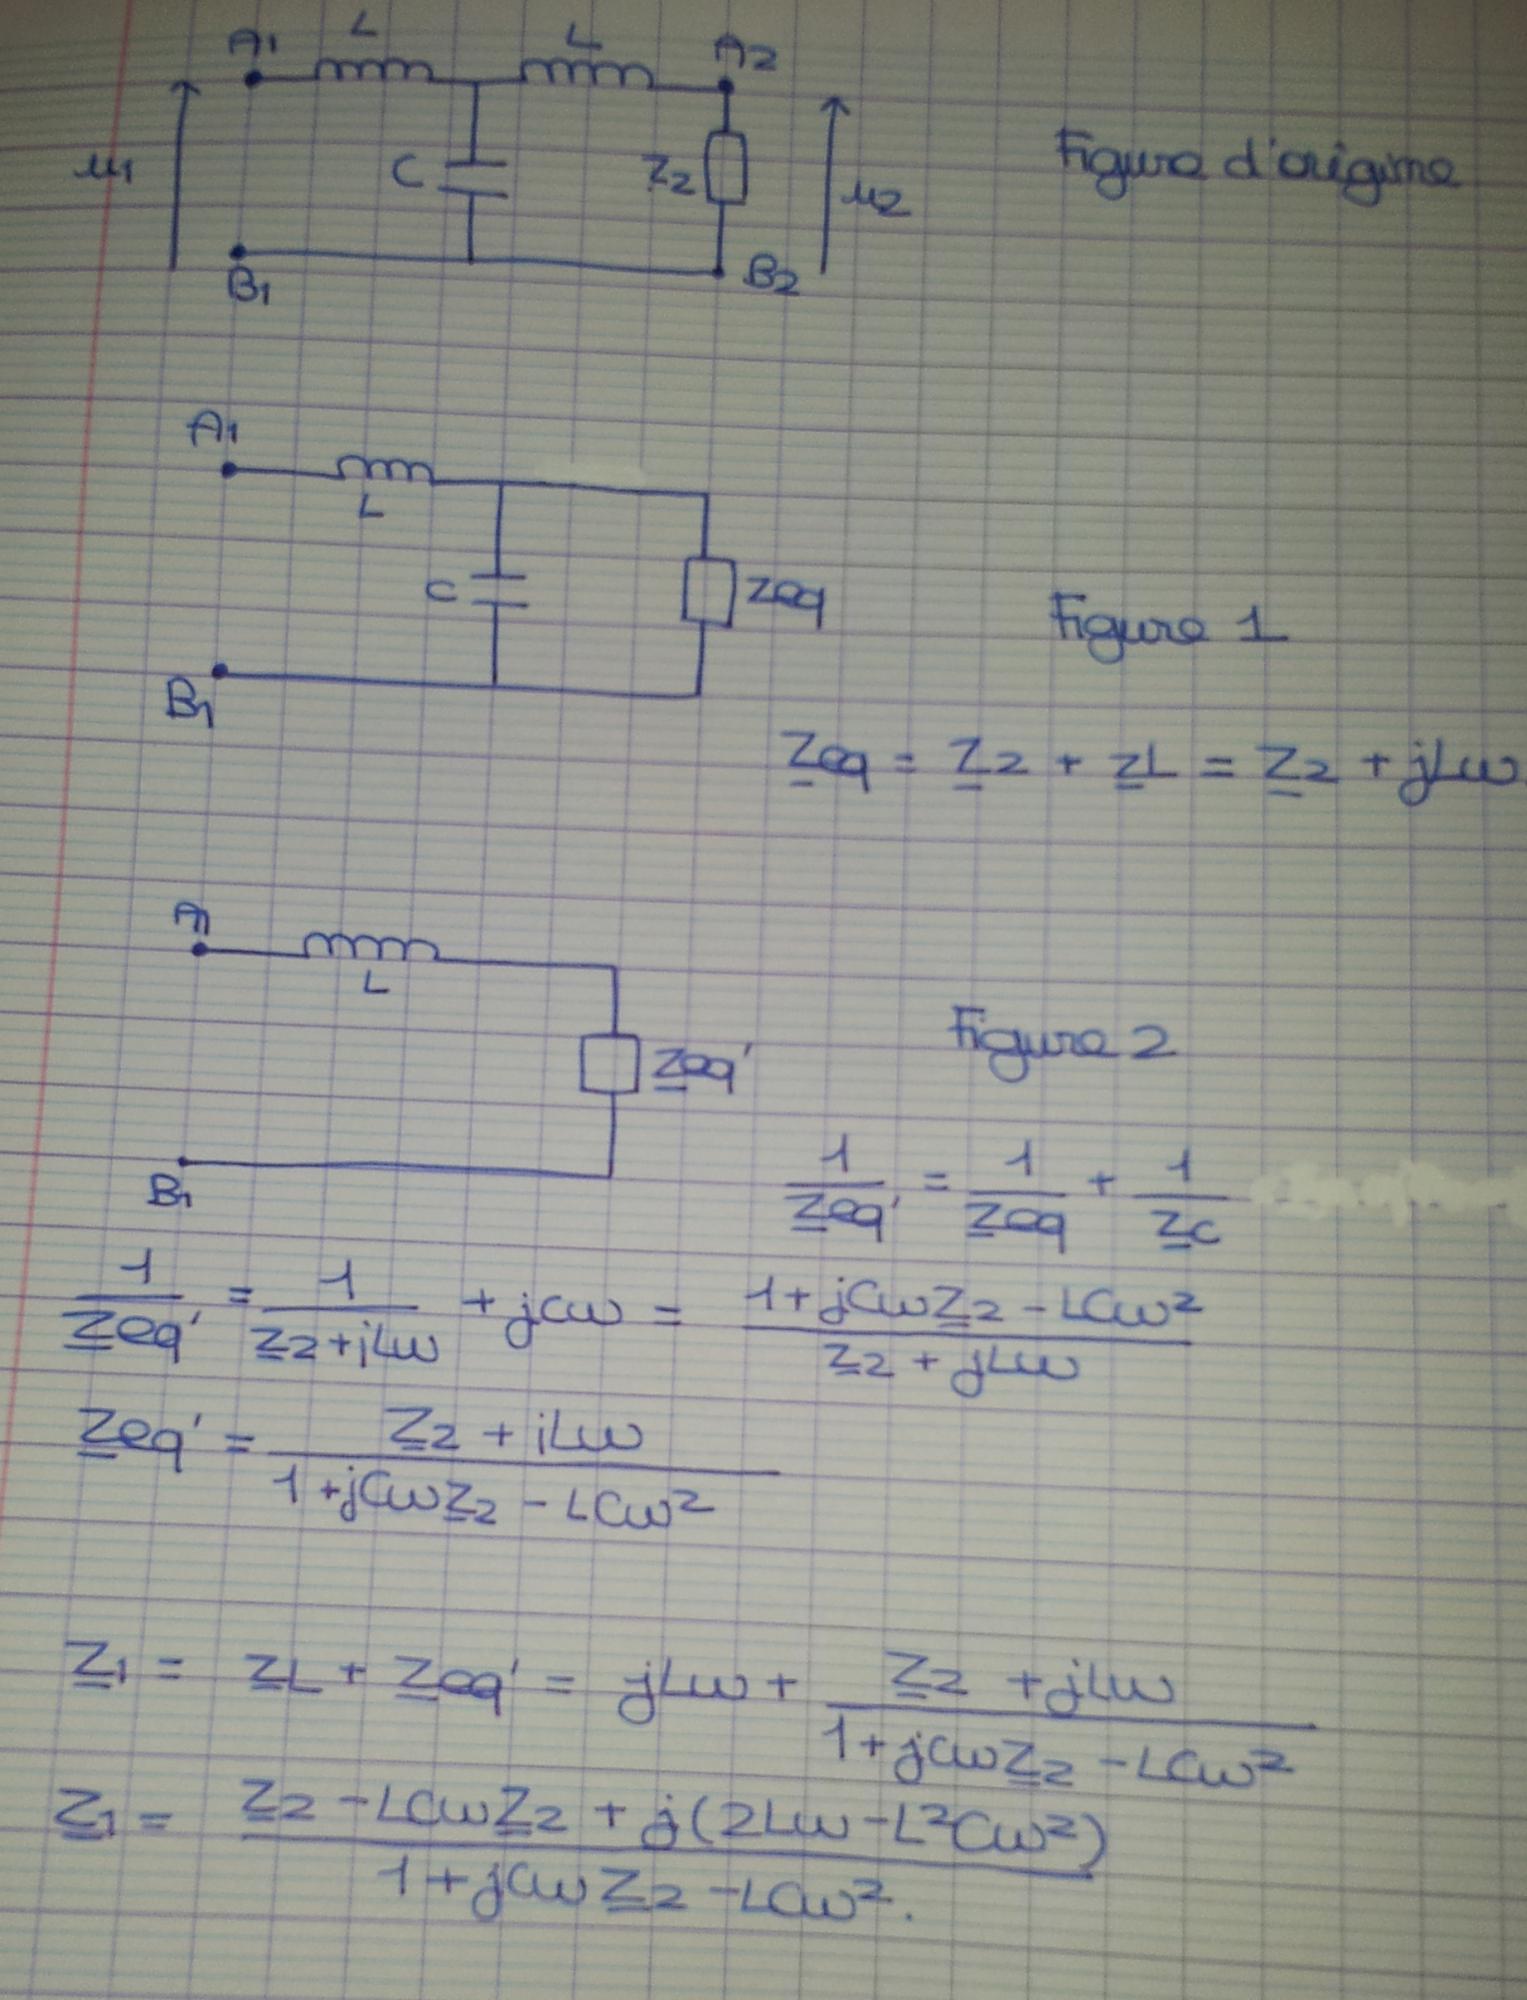 A1 L L A2
u1 C Z2 u2 Figure d'origine
B1 B2
A1
L
C Zeq Figure 1
B1
Zeq = Z2 + ZL = Z2 + jLω
A1
L
Zeq' Figure 2
B1
1/Zeq' = 1/Zeq + 1/Zc
1/Zeq' = 1/(Z2+jLω) + jCω = (1+jCωZ2 - LCω²)/(Z2 + jLω)
Zeq' = (Z2 + jLω)/(1+jCωZ2 - LCω²)
Z1 = ZL + Zeq' = jLω + (Z2 + jLω)/(1+jCωZ2 - LCω²)
Z1 = (Z2 - LCωZ2 + j(2Lω - L²Cω²))/(1+jCωZ2 - LCω²).